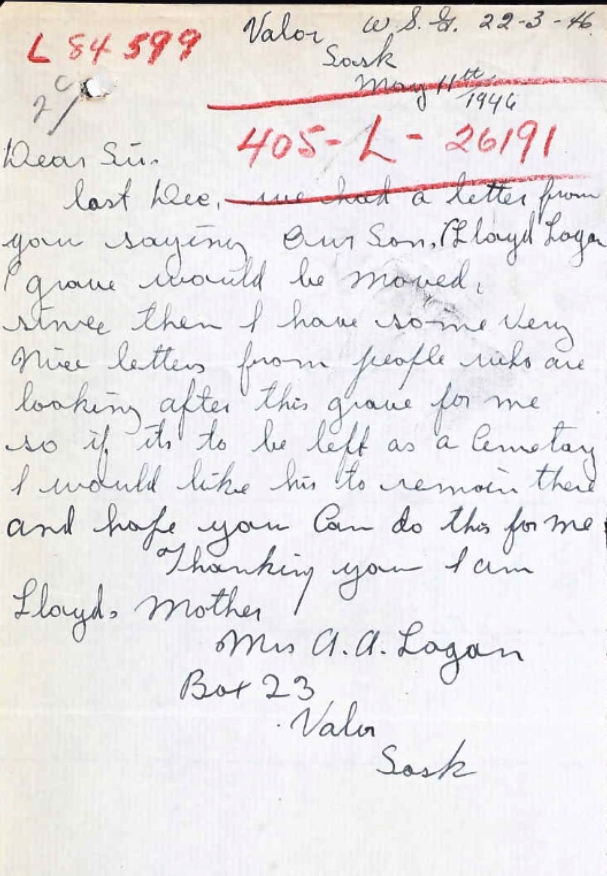 L 84599
Valor W.S.G. 22-3-46
Sask
May 11th
1946
405-L-26191
Dear Sir.
last Dec. we had a letter from
you saying Our Son, (Lloyd Logan
grave would be moved.
since then I have some very
nice letters from people who are
looking after this grave for me
so if its to be left as a Cemetary
I would like his to remain there
and hope you Can do this for me
Thanking you I am
Lloyds Mother
Mrs A.A. Logan
Box 23
Valor
Sask